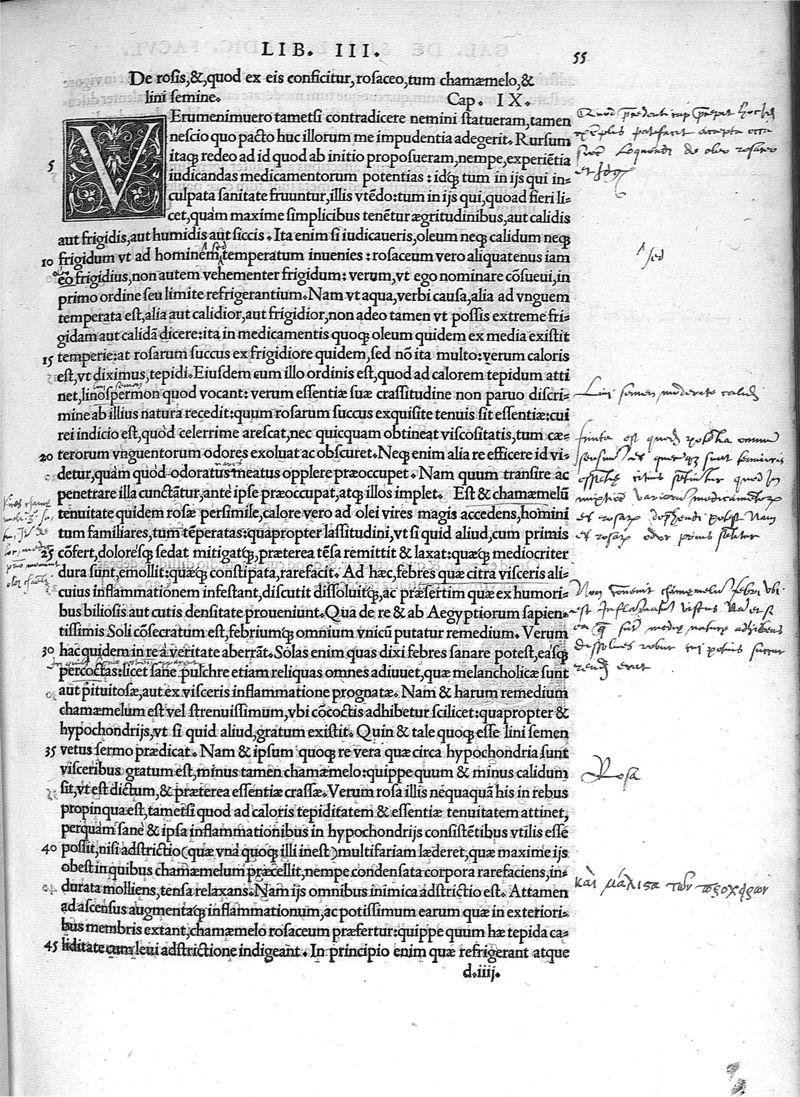 LIB. III. 55
De rosis,&,quod ex eis conficitur, rosaceo,tum chamæmelo,&
lini semine. Cap. IX.
VErumenimuero tametsi contradicere nemini statueram,tamen
nescio quo pacto huc illorum me impudentia adegerit. Rursum
5 itaq; redeo ad id quod ab initio proposueram,nempe,experiētia
iudicandas medicamentorum potentias : idq; tum in ijs qui in-
culpata sanitate fruuntur, illis vtēdo:tum in ijs qui,quoad fieri li-
cet,quàm maxime simplicibus tenētur ægritudinibus,aut calidis
aut frigidis,aut humidis aut siccis. Ita enim si iudicaueris,oleum neq; calidum neq;
10 frigidum vt ad hominem temperatum inuenies : rosaceum vero aliquatenus iam
eo frigidius,non autem vehementer frigidum: verum,vt ego nominare cōsueui,in
primo ordine seu limite refrigerantium. Nam vt aqua,verbi causa,alia ad vnguem
temperata est,alia aut calidior,aut frigidior,non adeo tamen vt possis extreme fri-
gidam aut calidā dicere:ita in medicamentis quoq; oleum quidem ex media existit
15 temperie:at rosarum succus ex frigidiore quidem,sed nō ita multo:verum caloris
est,vt diximus,tepidi. Eiusdem cum illo ordinis est,quod ad calorem tepidum atti
net,linospermon quod vocant: verum essentiæ suæ crassitudine non paruo discri-
mine ab illius natura recedit:quum rosarum succus exquisite tenuis sit essentiæ:cui
rei indicio est,quòd celerrime arescat,nec quicquam obtineat viscositatis,tum cæ-
20 terorum vnguentorum odores exoluat ac obscuret. Neq; enim alia re efficere id vi-
detur,quàm quòd odoratus meatus opplere præoccupet. Nam quum transire ac
penetrare illa cunctātur,antè ipse præoccupat,atq; illos implet. Est & chamæmelū
tenuitate quidem rosæ persimile,calore vero ad olei vires magis accedens,homini
tum familiares,tum tēperatas:quapropter lassitudini,vt si quid aliud,cum primis
25 cōfert,doloresq; sedat mitigatq;,præterea tēsa remittit & laxat:quæq; mediocriter
dura sunt,emollit:quæq; constipata,rarefacit. Ad hæc,febres quæ citra visceris ali-
cuius inflammationem infestant,discutit dissoluitq;,ac præsertim quæ ex humori-
bus biliosis aut cutis densitate proueniunt. Qua de re & ab Aegyptiorum sapien-
tissimis Soli cōsecratum est,febriumq; omnium vnicū putatur remedium. Verum
30 hac quidem in re à veritate aberrāt. Solas enim quas dixi febres sanare potest,easq;
percoctas:licet sane pulchre etiam reliquas omnes adiuuet,quæ melancholicæ sunt
aut pituitosæ,aut ex visceris inflammatione prognatæ. Nam & harum remedium
chamæmelum est vel strenuissimum,vbi cōcoctis adhibetur scilicet:quapropter &
hypochondrijs,vt si quid aliud,gratum existit. Quin & tale quoq; esse lini semen
35 vetus sermo prædicat. Nam & ipsum quoq; re vera quæ circa hypochondria sunt
visceribus gratum est,minus tamen chamæmelo:quippe quum & minus calidum
sit,vt est dictum,& præterea essentiæ crassæ. Verum rosa illis nequaquā his in rebus
propinqua est,tametsi quod ad caloris tepiditatem & essentiæ tenuitatem attinet,
perquàm sane & ipsa inflammationibus in hypochondrijs consistētibus vtilis esse
40 possit,nisi adstrictio(quæ vnà quoq; illi inest)multifariam læderet,quæ maxime ijs
obest in quibus chamæmelum præcellit,nempe condensata corpora rarefaciens,in-
durata molliens,tensa relaxans. Nam ijs omnibus inimica adstrictio est. Attamen
ad ascensus augmentaq; inflammationum,ac potissimum earum quæ in exteriori-
bus membris extant,chamæmelo rosaceum præfertur:quippe quum hæ tepida ca-
45 liditate cum leui adstrictione indigeant. In principio enim quæ refrigerant atque
d.iiij.
sed
Lini semen moderate calid
Rosa